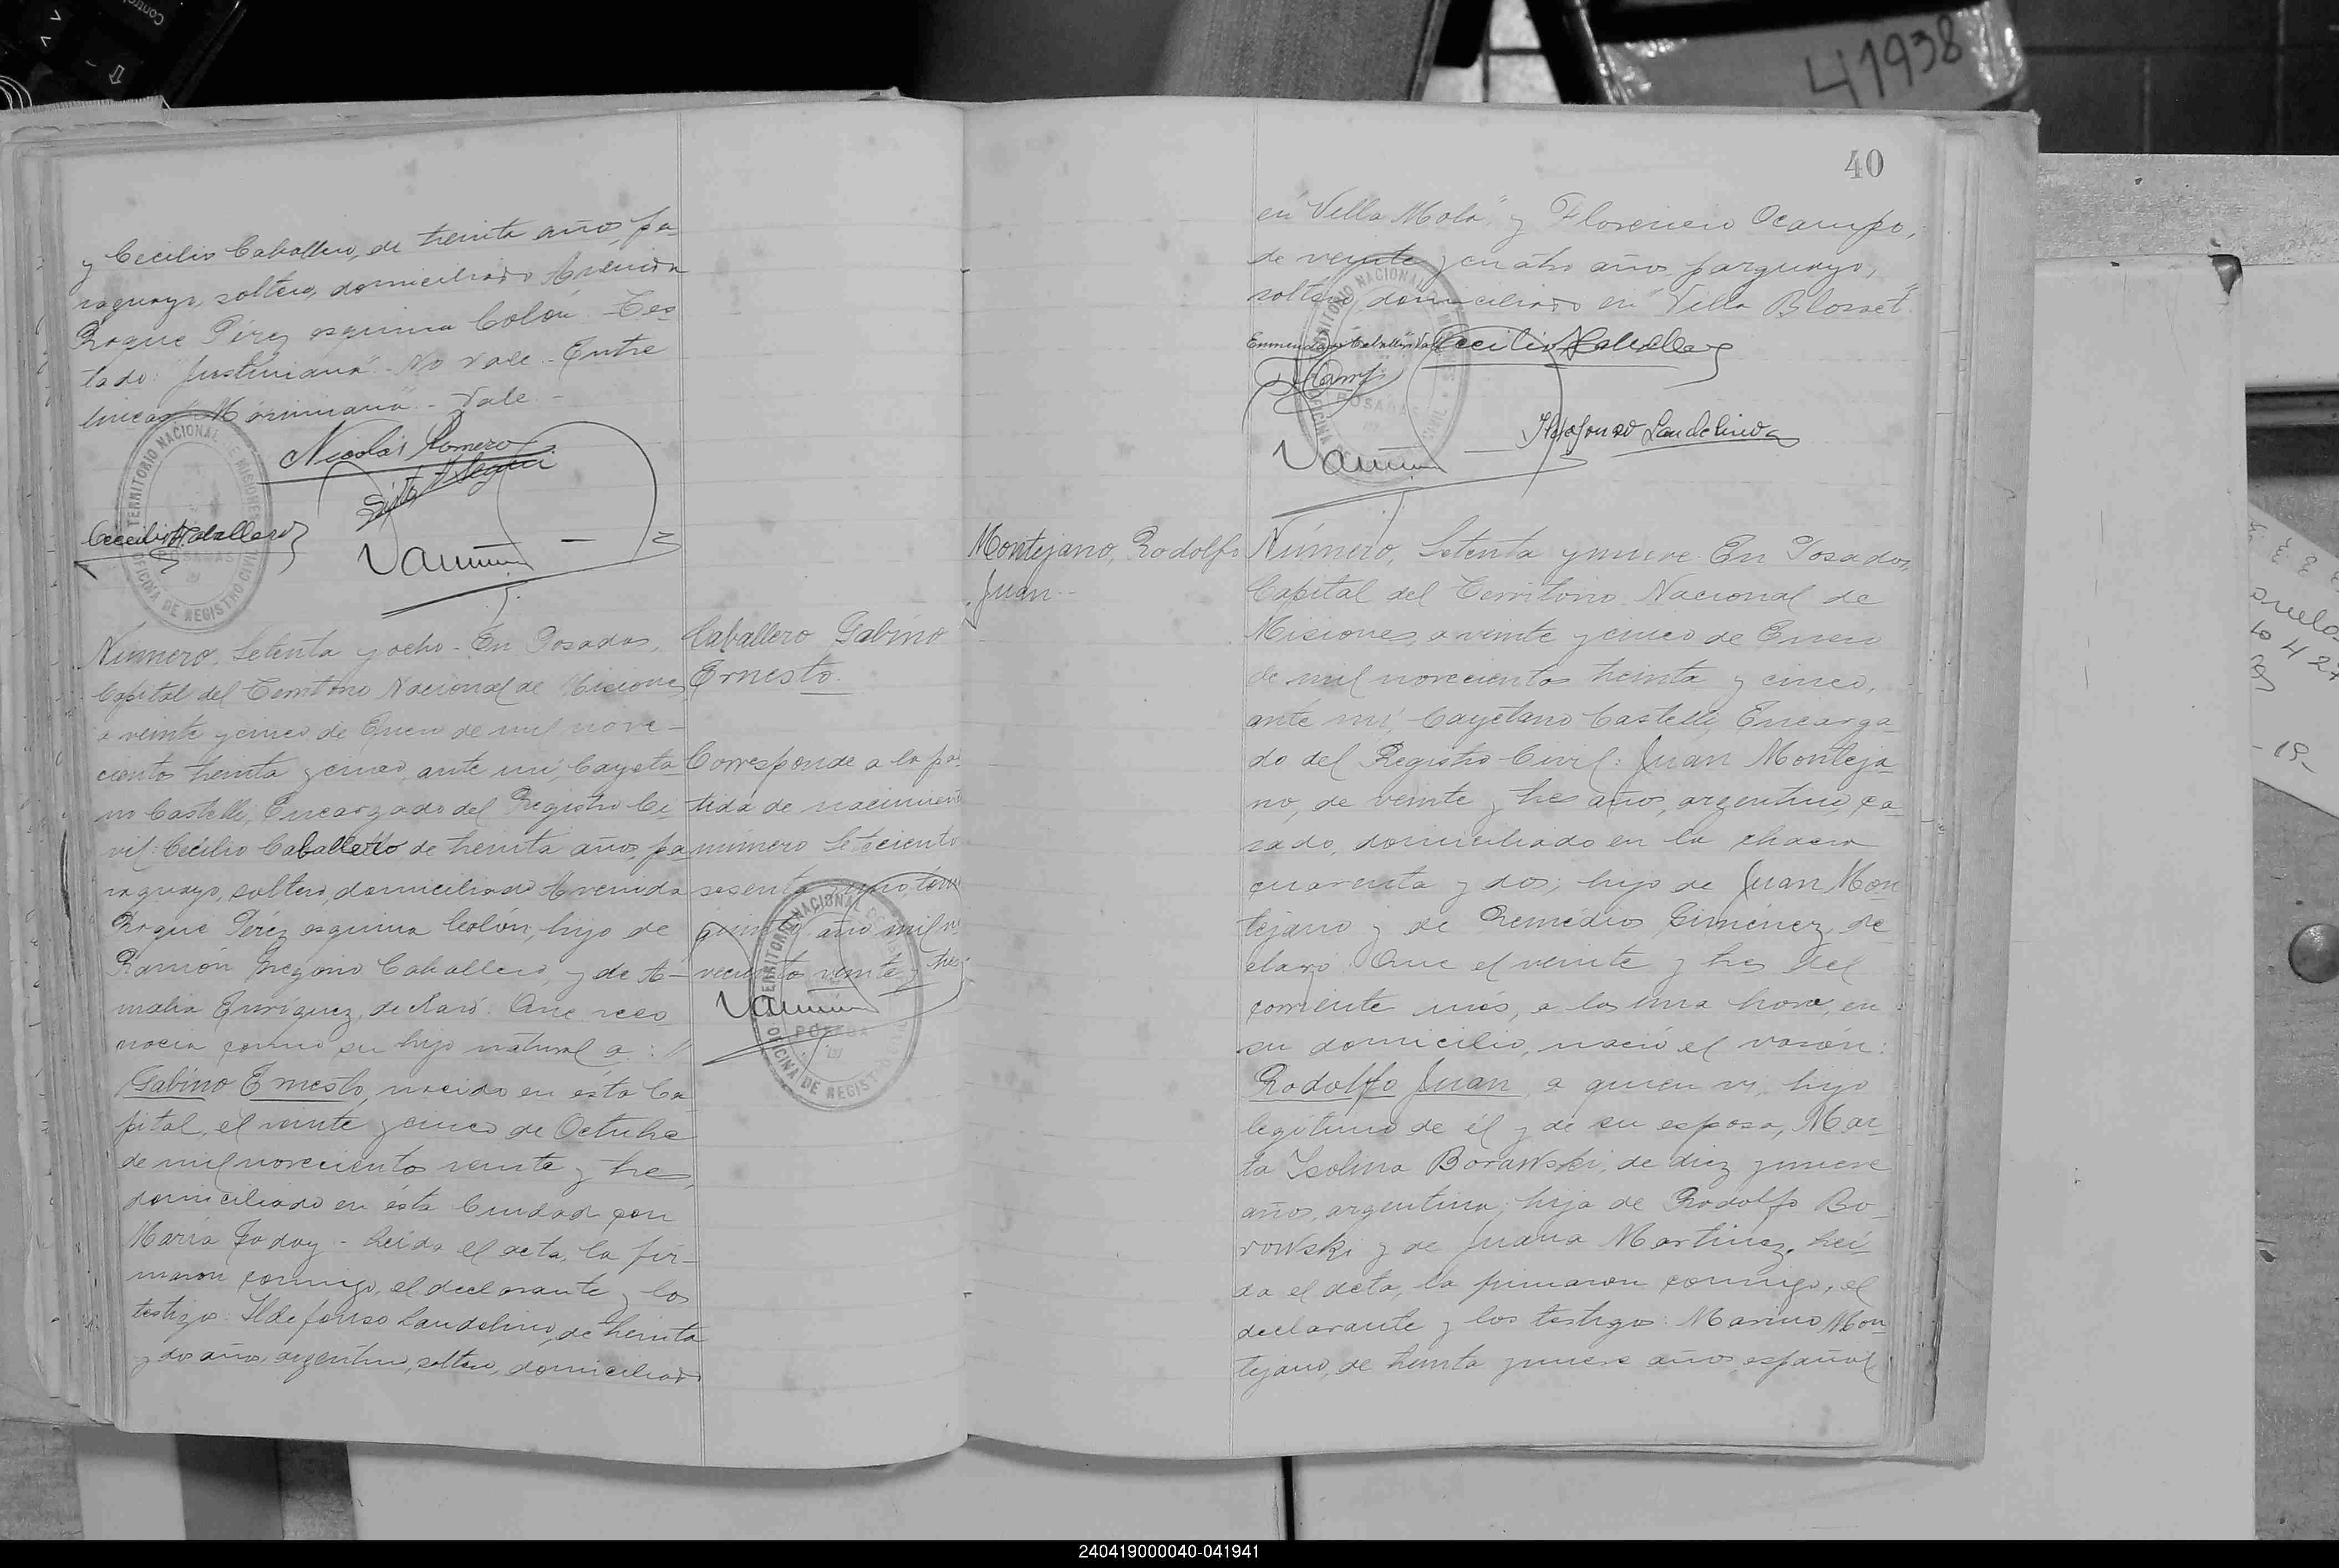 y Cecilio Caballero, de treinta años, pa-
raguayo, soltero, domiciliado Avenida
Roque Pérez esquina Colón. Tes-
tado: "Justiniana" - No vale - Entre
lineas "Maximiana" - Vale -
Nicolás Romero
Cecilio Caballero
TERRITORIO NACIONAL DE MISIONES
OFICINA DE REGISTRO CIVIL
POSADAS
Número, Setenta y ocho - En Posadas,
Capital del Territorio Nacional de Misiones,
a veinte y cinco de Enero de mil nove-
cientos treinta y cinco, ante mi, Cayeta
no Castelli, Encargado del Registro Ci
vil: Cecilio Caballero de treinta años, pa
raguayo, soltero, domiciliado Avenida
Roque Pérez esquina Colón, hijo de
Ramón Gregorio Caballero, y de A-
malia Enríquez, declaró: Que reco
nocia como su hijo natural a: //
Gabino Ernesto, nacido en ésta Ca
pital, el veinte y cinco de Octubre
de mil novecientos veinte y tres,
domiciliado en ésta Ciudad con
María Godoy - Leída el acta, la fir-
maron conmigo, el declarante y los
testigos: Ildefonso Laudelino, de treinta
y dos años, argentino, soltero, domiciliado
Caballero, Gabino
Ernesto.
Corresponde a la par
tida de nacimiento
número Setecientos
sesenta y uno, tomo
quinto año mil no
vecientos veinte y tres.
TERRITORIO NACIONAL DE MISIONES
OFICINA DE REGISTRO CIVIL
POSADAS
40
en "Villa Molá" y Florencio Ocampo,
de veinte y cuatro años, parguayo,
soltero, domiciliado en "Villa Blosset".
Enmendado "Caballero" Vale
Cecilio Caballero
Ildefonso Laudelino
TERRITORIO NACIONAL DE MISIONES
OFICINA DE REGISTRO CIVIL
POSADAS
Montejano, Rodolfo
Juan.-
Número, Setenta y nueve. En Posadas,
Capital del Territorio Nacional de
Misiones, a veinte y cinco de Enero
de mil novecientos treinta y cinco,
ante mi, Cayetano Castelli, Encarga-
do del Registro Civil: Juan Monteja-
no, de veinte y tres años, argentino, ca-
sado, domiciliado en la chacra
cuarenta y dos; hijo de Juan Mon
tejano y de Remedios Giménez, de-
claró: Que el veinte y tres del
corriente mes, a las una hora, en
su domicilio, nació el varón:
Rodolfo Juan, a quien vi, hijo
legítimo de él y de su esposa, Mar-
ta Isolina Borawski, de diez y nueve
años, argentina; hija de Rodolfo Bo-
rowski y de Juana Martinez. Leí-
da el acta, la firmaron conmigo, el
declarante y los testigos: Marino Mon
tejano, de treinta y nueve años, español
41938
240419000040-041941